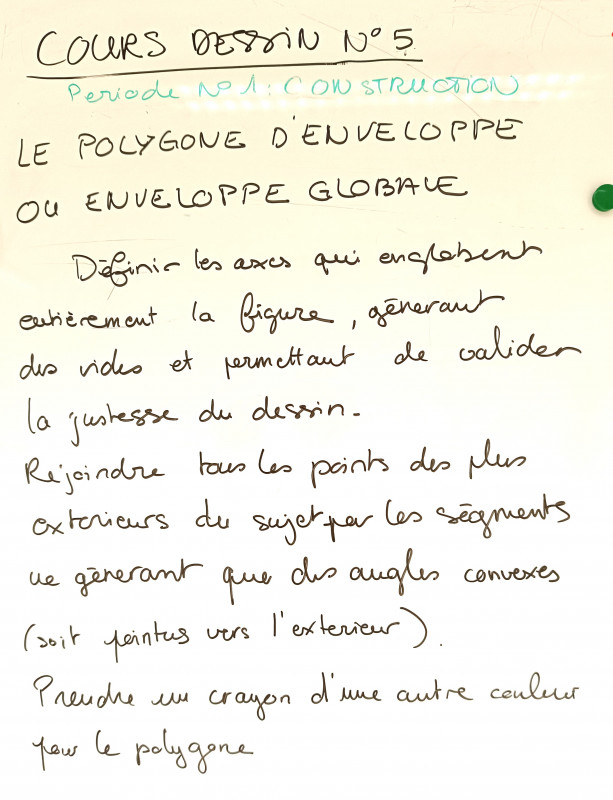 COURS DESSIN N°5
Periode N°1: CONSTRUCTION
LE POLYGONE D'ENVELOPPE
OU ENVELOPPE GLOBALE
Définir les axes qui englobent
entièrement la figure, génerant
des vides et permettant de valider
la justesse du dessin.
Rejoindre tous les points des plus
exterieurs du sujet par les ségments
ne génerant que des angles convexes
(soit pointus vers l'exterieur).
Prendre un crayon d'une autre couleur
pour le polygone